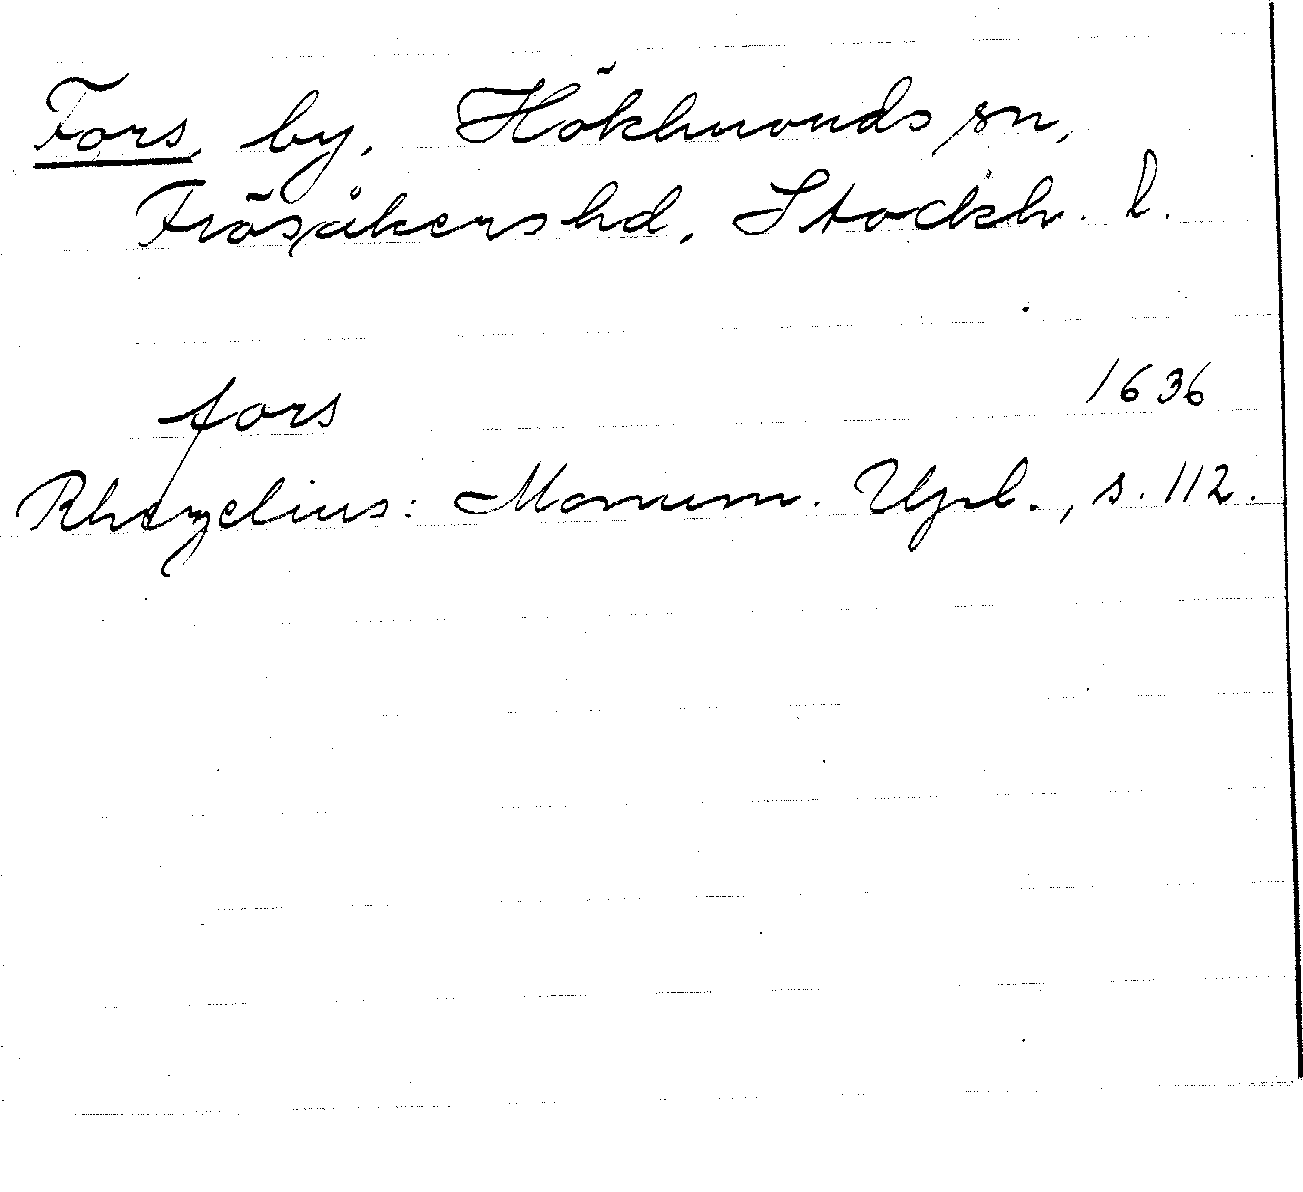 Fors, by, Hökhuvuds sn,
Frösåkers hd, Stockh. l.
fors 1636
Rhezelius: Monum. Upl., s. 112.